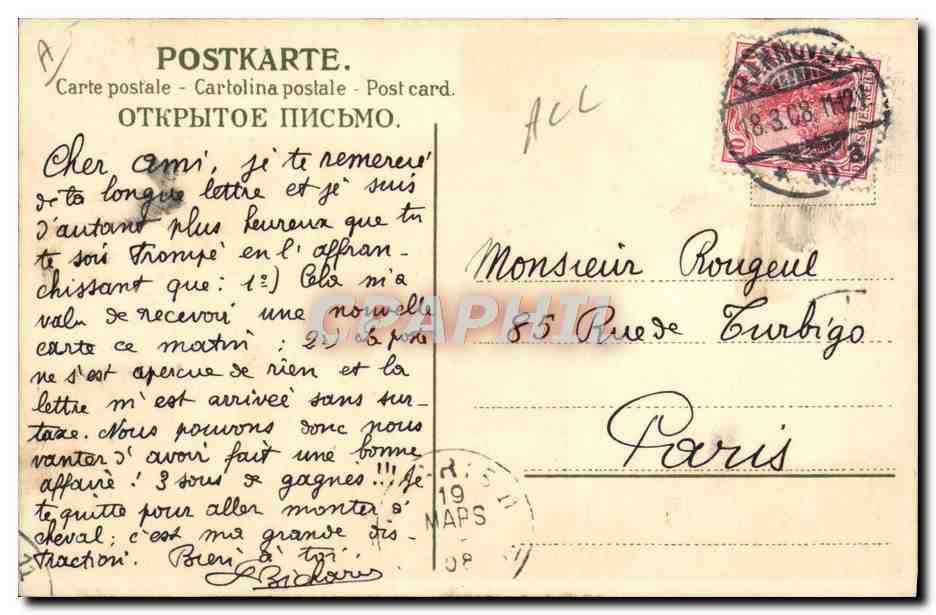 A
POSTKARTE.
Carte postale - Cartolina postale - Post card.
ОТКРЫТОЕ ПИСЬМО.
ALL
HANNOVER
18.3.08. 11-12V.
* 10 a
10
Cher ami, je te remercie
de ta longue lettre et je suis
d'autant plus heureux que tu
te sois trompé en l'affran-
chissant que : 1º) Celà m'a
valu de recevoir une nouvelle
carte ce matin ; 2º) La poste
ne s'est aperçue de rien et la
lettre m'est arrivée sans sur-
taxe. Nous pouvons donc nous
vanter d'avoir fait une bonne
affaire ! 3 sous de gagnés !!! Je
te quitte pour aller monter à
cheval ; c'est ma grande dis-
traction. Bien à toi.
Monsieur Rougeul
85 Rue de Turbigo
Paris
19
MARS
08
CPAPHIL